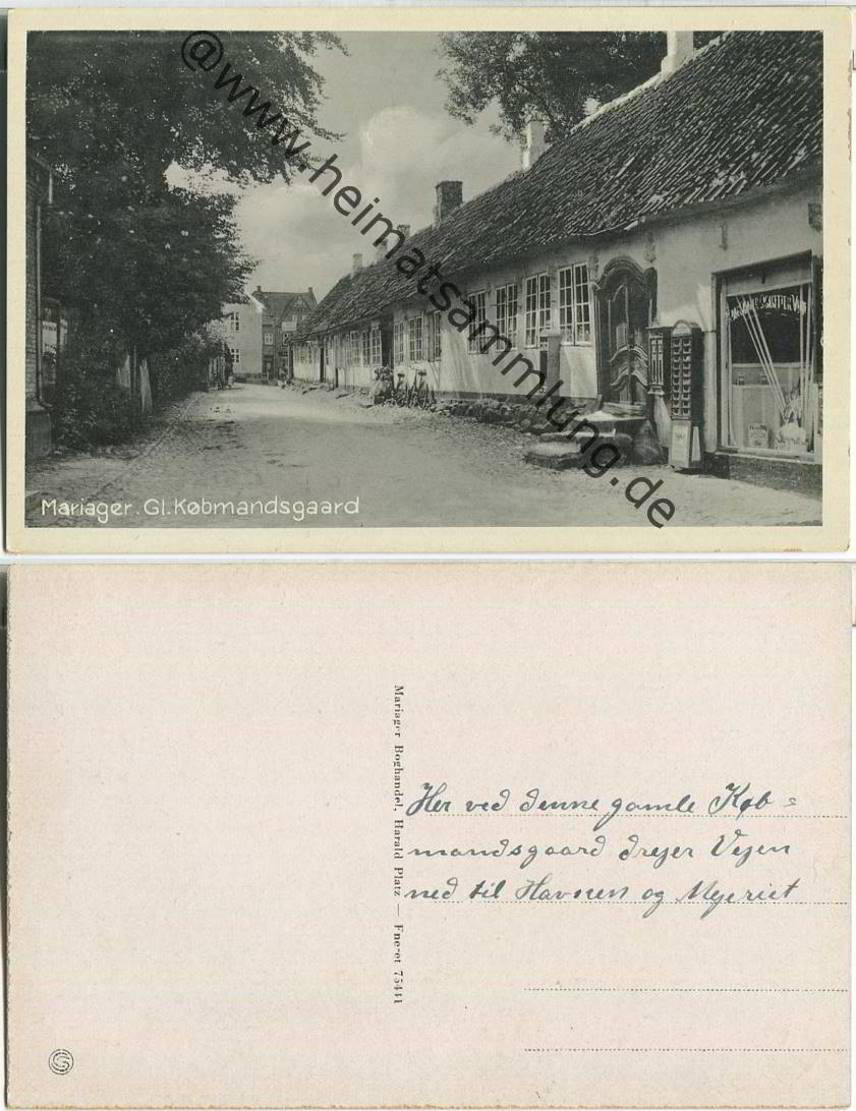 @www.heimatsammlung.de
Mariager. Gl. Købmandsgaard
Mariager Boghandel, Harald Platz — Eneret 75441
Her ved denne gamle Køb=
mandsgaard drejer Vejen
ned til Havnen og Mejeriet